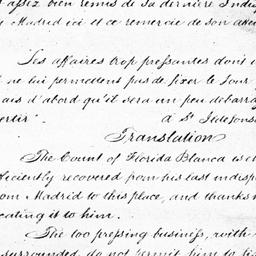 assez bien remis de sa dernière Indis
Madrid ici et ce remercie de son atten
Ses affaires trop pressantes dont i
ne lui permettent pas de fixer le Jour
ais d'abord qu'il sera un peu débarra
ertir. à St Ildefons
Translation
The Count of Florida Blanca is e
fficiently recovered from his last indisp
om Madrid to this place, and thanks
cating it to him.
The too pressing business, with
surrounded do not permit him to fix